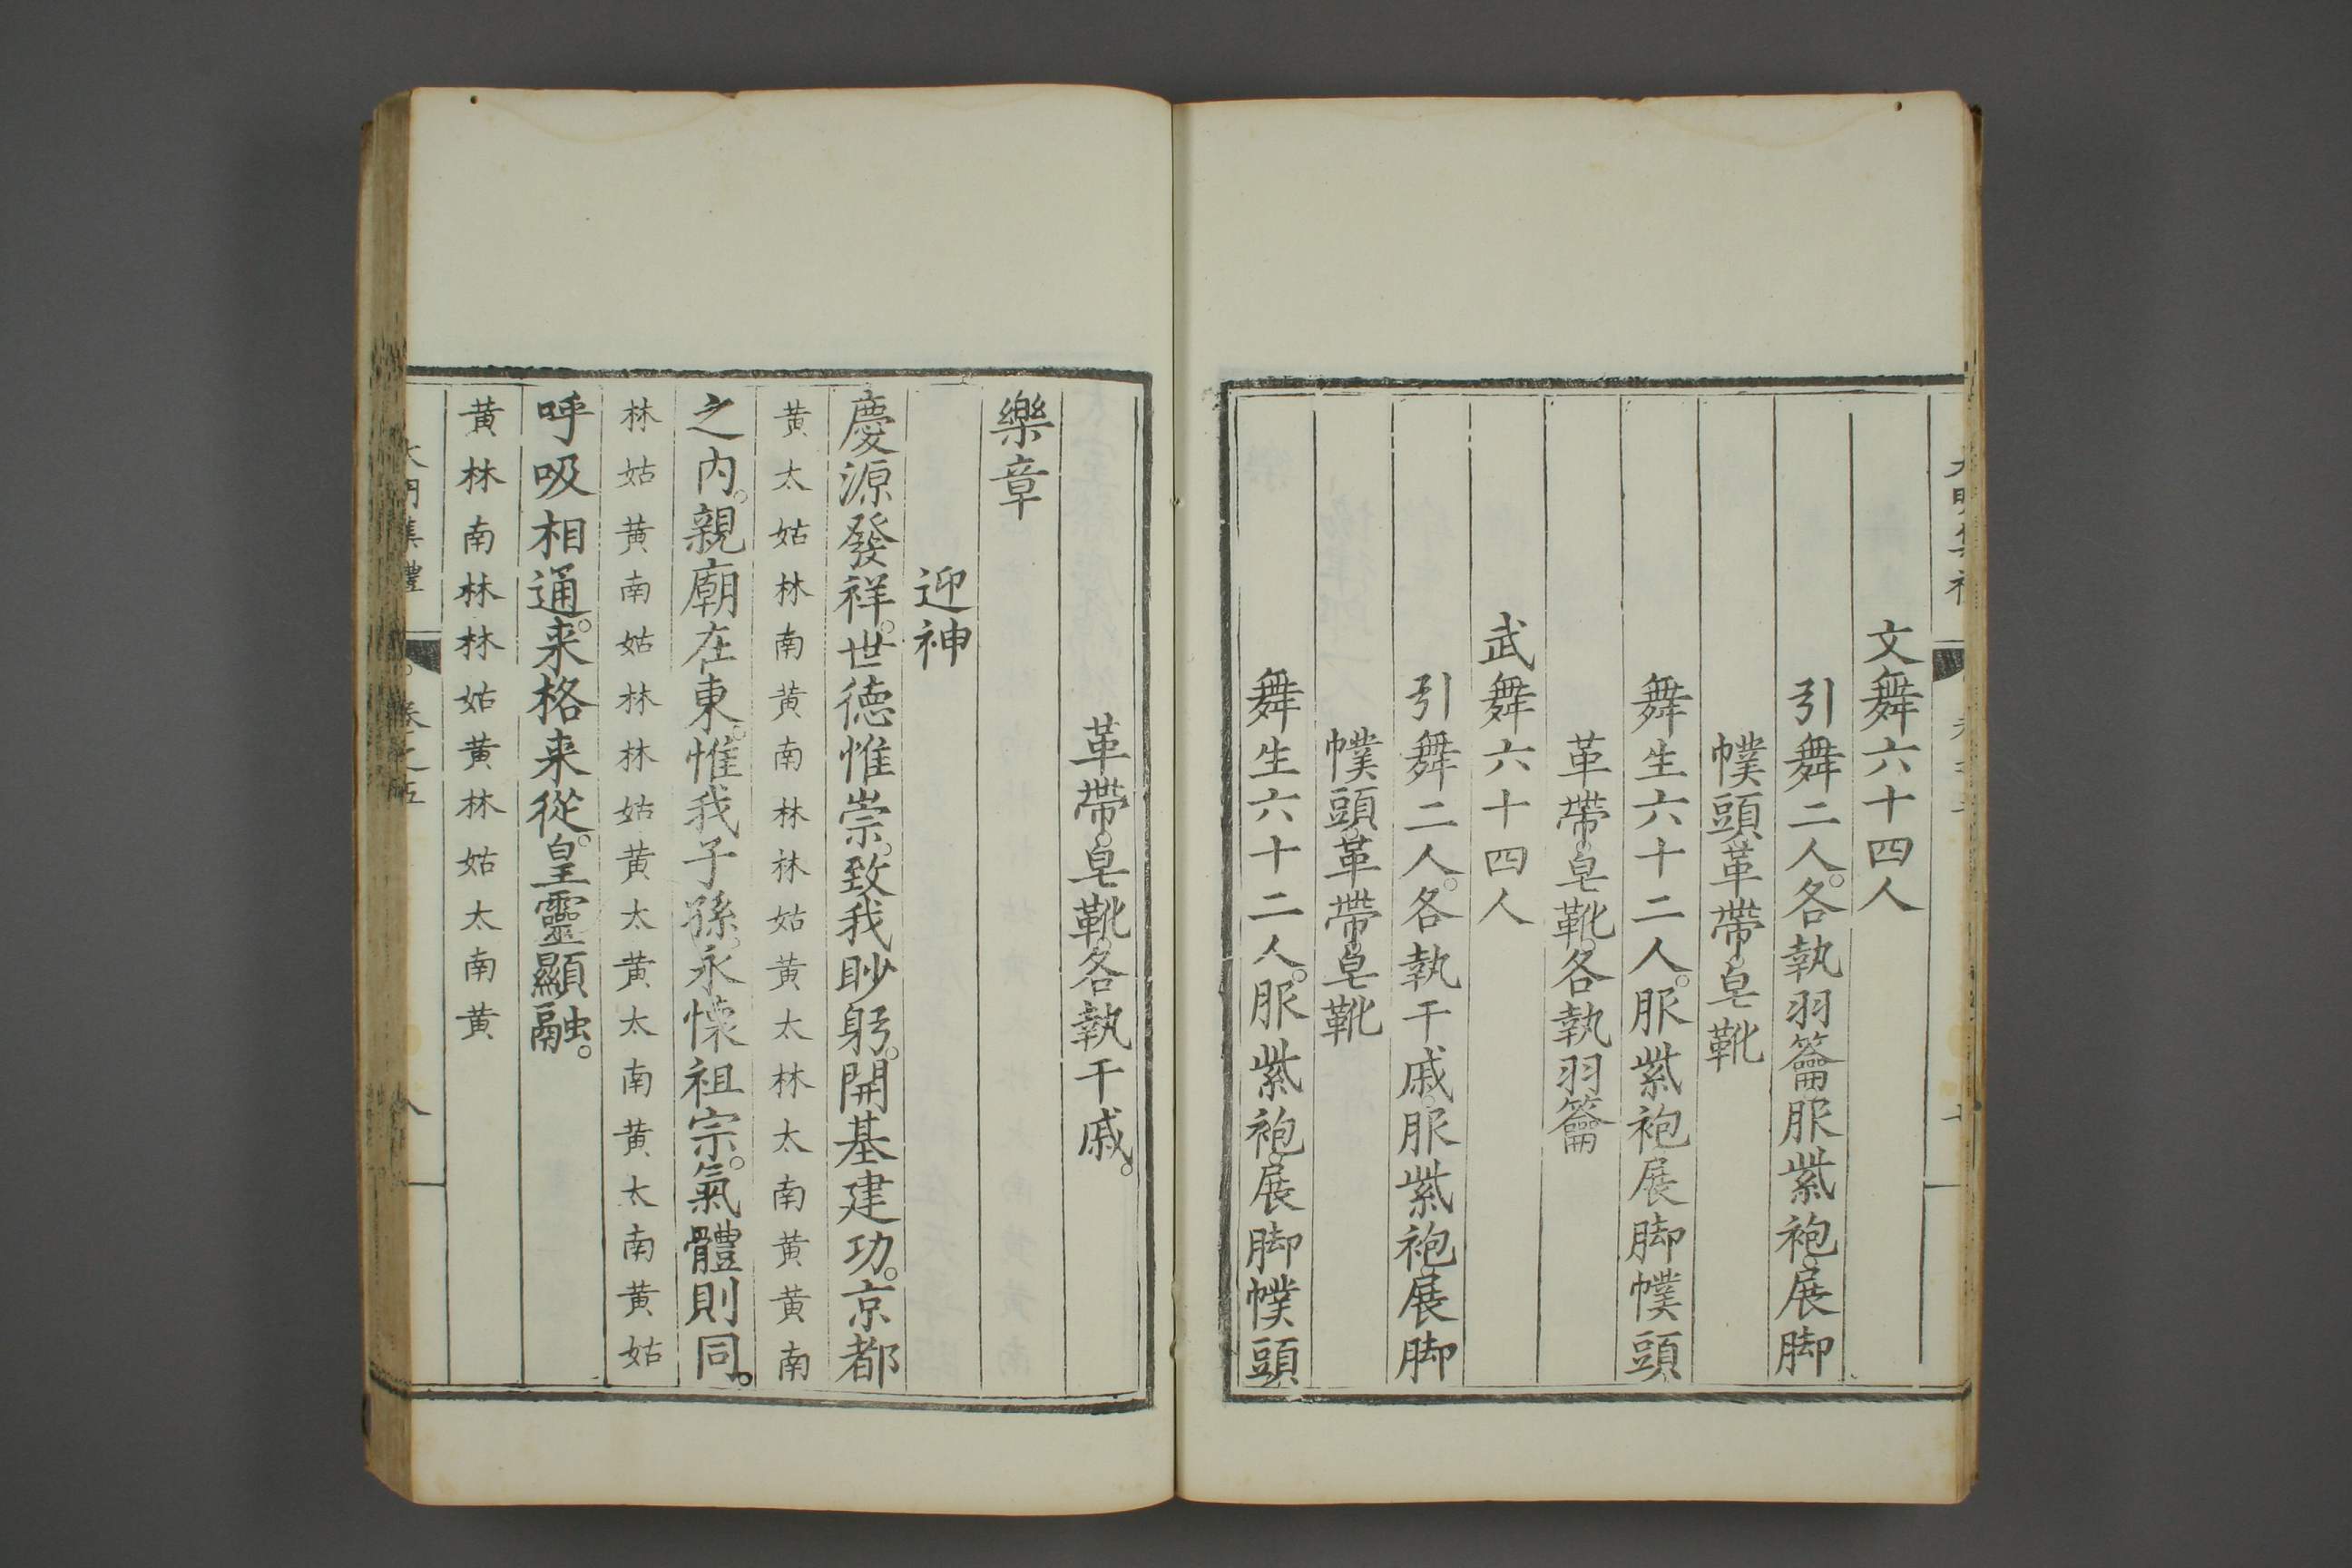 文舞六十四人
引舞二人。各執羽籥。服紫袍。展脚
幞頭。革帶。皂靴
舞生六十二人。服紫袍。展脚幞頭
革帶。皂靴。各執羽籥
武舞六十四人
引舞二人。各執干戚。服紫袍。展脚
幞頭。革帶。皂靴
舞生六十二人。服紫袍。展脚幞頭
革帶。皂靴。各執干戚。
樂章
迎神
慶源發祥。世德惟崇。致我眇躬。開基建功。京都
黃太姑林南黃南林林姑黃太林太南黃黃南
之内。親廟在東。惟我子孫。永懷祖宗。氣體則同。
林姑黃南姑林林姑黃太黃太南黃太南黃姑
呼吸相通。来格来從。皇靈顯融。
黃林南林林姑黃林姑太南黃
大明集禮 卷之五
八